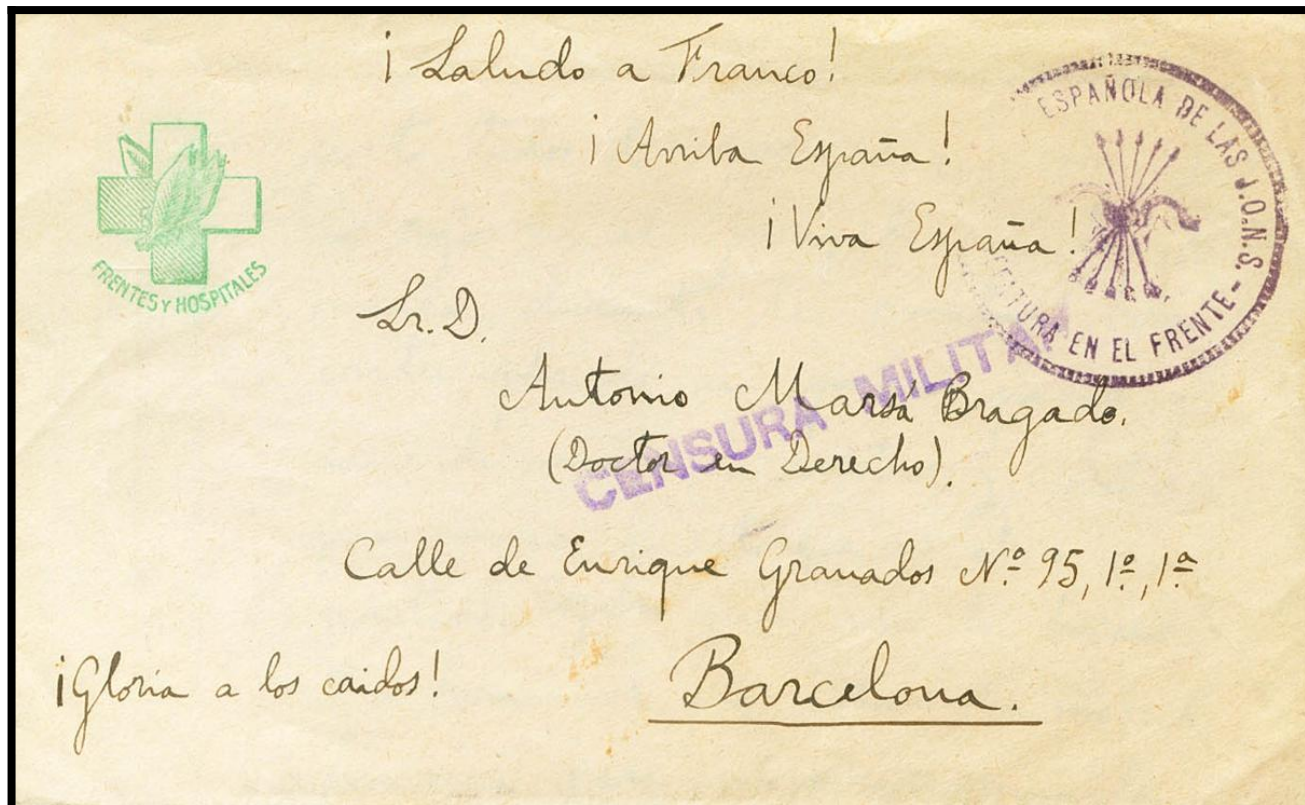 ¡Saludo a Franco!
¡Arriba España!
¡Viva España!
FRENTES Y HOSPITALES
ESPAÑOLA DE LAS J.O.N.S. -
EN EL FRENTE -
Sr. D.
Antonio Marsá Bragado.
(Doctor en Derecho).
CENSURA MILITAR
Calle de Enrique Granados Nº 95, 1º, 1ª
¡Gloria a los caidos!
Barcelona.